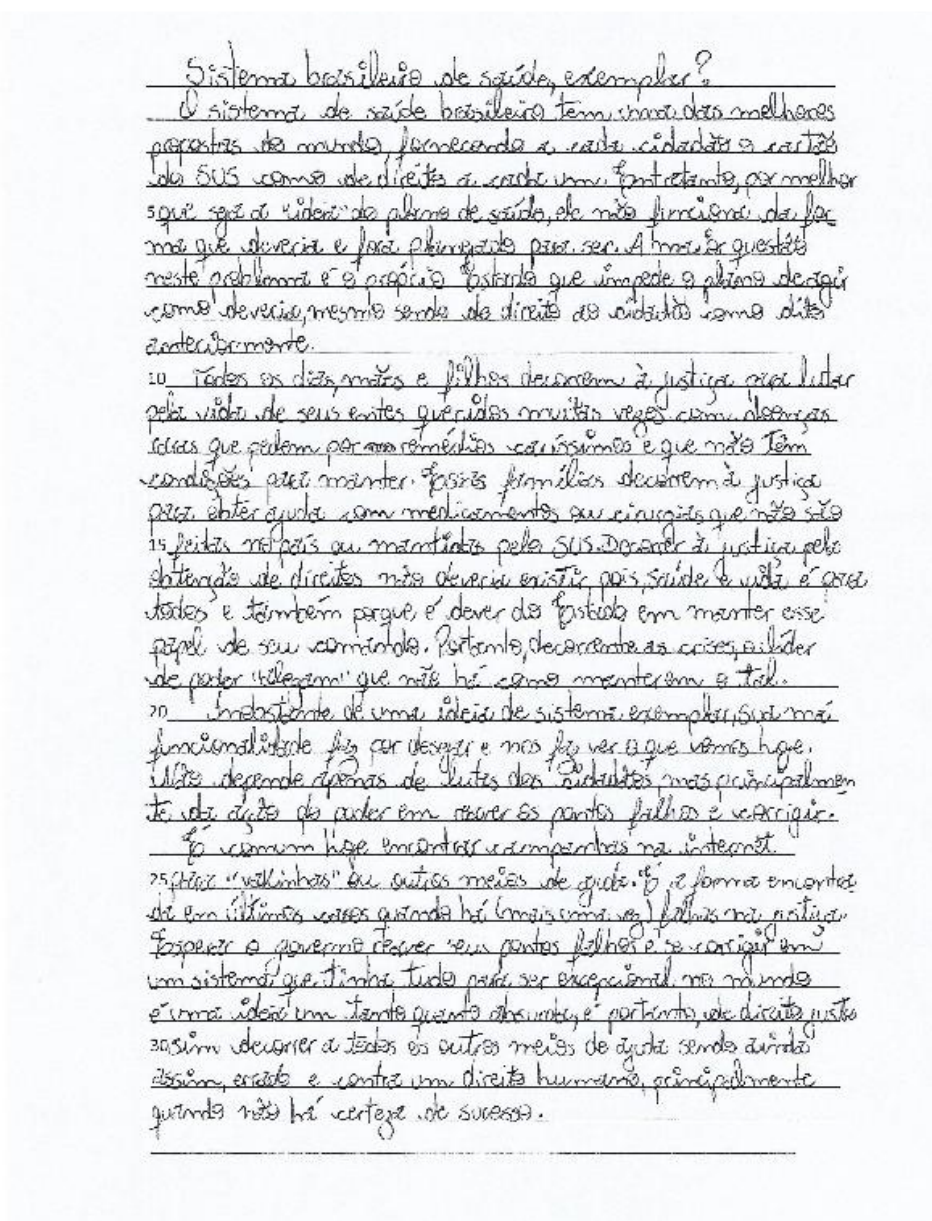 Sistema brasileiro de saúde, exemplar?
O sistema de saúde brasileiro tem uma das melhores
propostas do mundo, fornecendo a cada cidadão o cartão
do SUS como de direito a cada um. Entretanto, por melhor
5 que seja a "ideia" do plano de saúde, ele não funciona da for
ma que deveria e fora planejado para ser. A maior questão
neste problema é o próprio Estado que impede o plano de agir
como deveria, mesmo sendo de direito ao cidadão como dito
anteriormente.
10 Todos os dias, mães e filhos decorrem à justiça para lutar
pela vida de seus entes queridos muitas vezes com doenças
raras que pedem por remédios caríssimos e que não têm
condições para manter. Essas famílias decorrem à justiça
para obter ajuda com medicamentos ou cirurgias que não são
15 feitas no país ou mantidas pelo SUS. Decorrer à justiça pela
obtenção de direitos não deveria existir, pois saúde e vida é para
todos e também porque é dever do Estado em manter esse
papel de seu comando. Portanto, decorrente as crises, o líder
de poder "alegam" que não há como manterem o tal.
20 Inobstante de uma ideia de sistema exemplar, sua má
funcionalidade faz por desejar e nos faz ver o que vemos hoje.
Não depende apenas de lutas dos cidadãos, mas principalmen
te da ação do poder em rever os pontos falhos e corrigir.
É comum hoje encontrar campanhas na internet
25 para "vakinhas" ou outros meios de ajuda. É a forma encontra
da em últimos casos quando há (mais uma vez) falhas na justiça.
Esperar o governo rever seus pontos falhos e se corrigir em
um sistema que tinha tudo para ser excepcional no mundo
é uma ideia um tanto quanto absurda, é portanto, de direito justo
30 sim decorrer a todos os outros meios de ajuda sendo ainda
assim, errado e contra um direito humano, principalmente
quando não há certeza de sucesso.